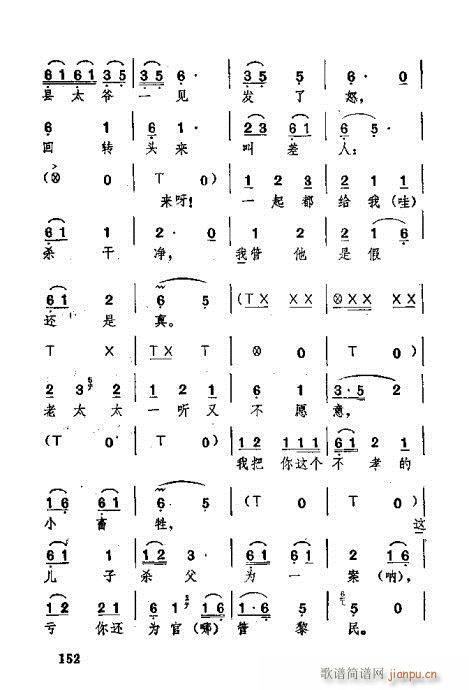 6 1 6 1 3 5 | 3 5 6· | 3 5 5 | 6· 0 |
县太爷一见 发了怒，
6 1 | 6· 1 | 2 3 6 1 | 6 5· |
回转头来 叫差人：
(⊗ 0 | T 0) | 1 2 3 | 2 1 1 |
来呀！一起都给我(哇)
6 1 1 | 2· 0 | 1 2 3 | 2 1 6 |
杀干净，我管他是假
6 1 2 | 6 5 | (T X X X | ⊗ X X X X |
还是真。
T X | T X X T X | ⊗ 0 | T 0) |
2 3 2 1 | 1 2 1 | 6 1 | 3· 5 2 |
老太太一听又不愿意，
(T 0 | T 0) | 1 2 1 1 1 | 6 1 2 1 |
我把你这个不孝的
1 6 6 1 | 6· 5 | (T 0 | T 0) |
小畜牲，这
6 1 1 | 1 2 3· | 6 1 6 1 | 2 1 6 |
儿子杀父为一案(呐)，
1 2 2 1 | 1 2 3 2 3 5 | 1· 6 5 6 | 5· 0 |
亏你还为官(哪)管黎民。
152
歌谱简谱网
jianpu.cn